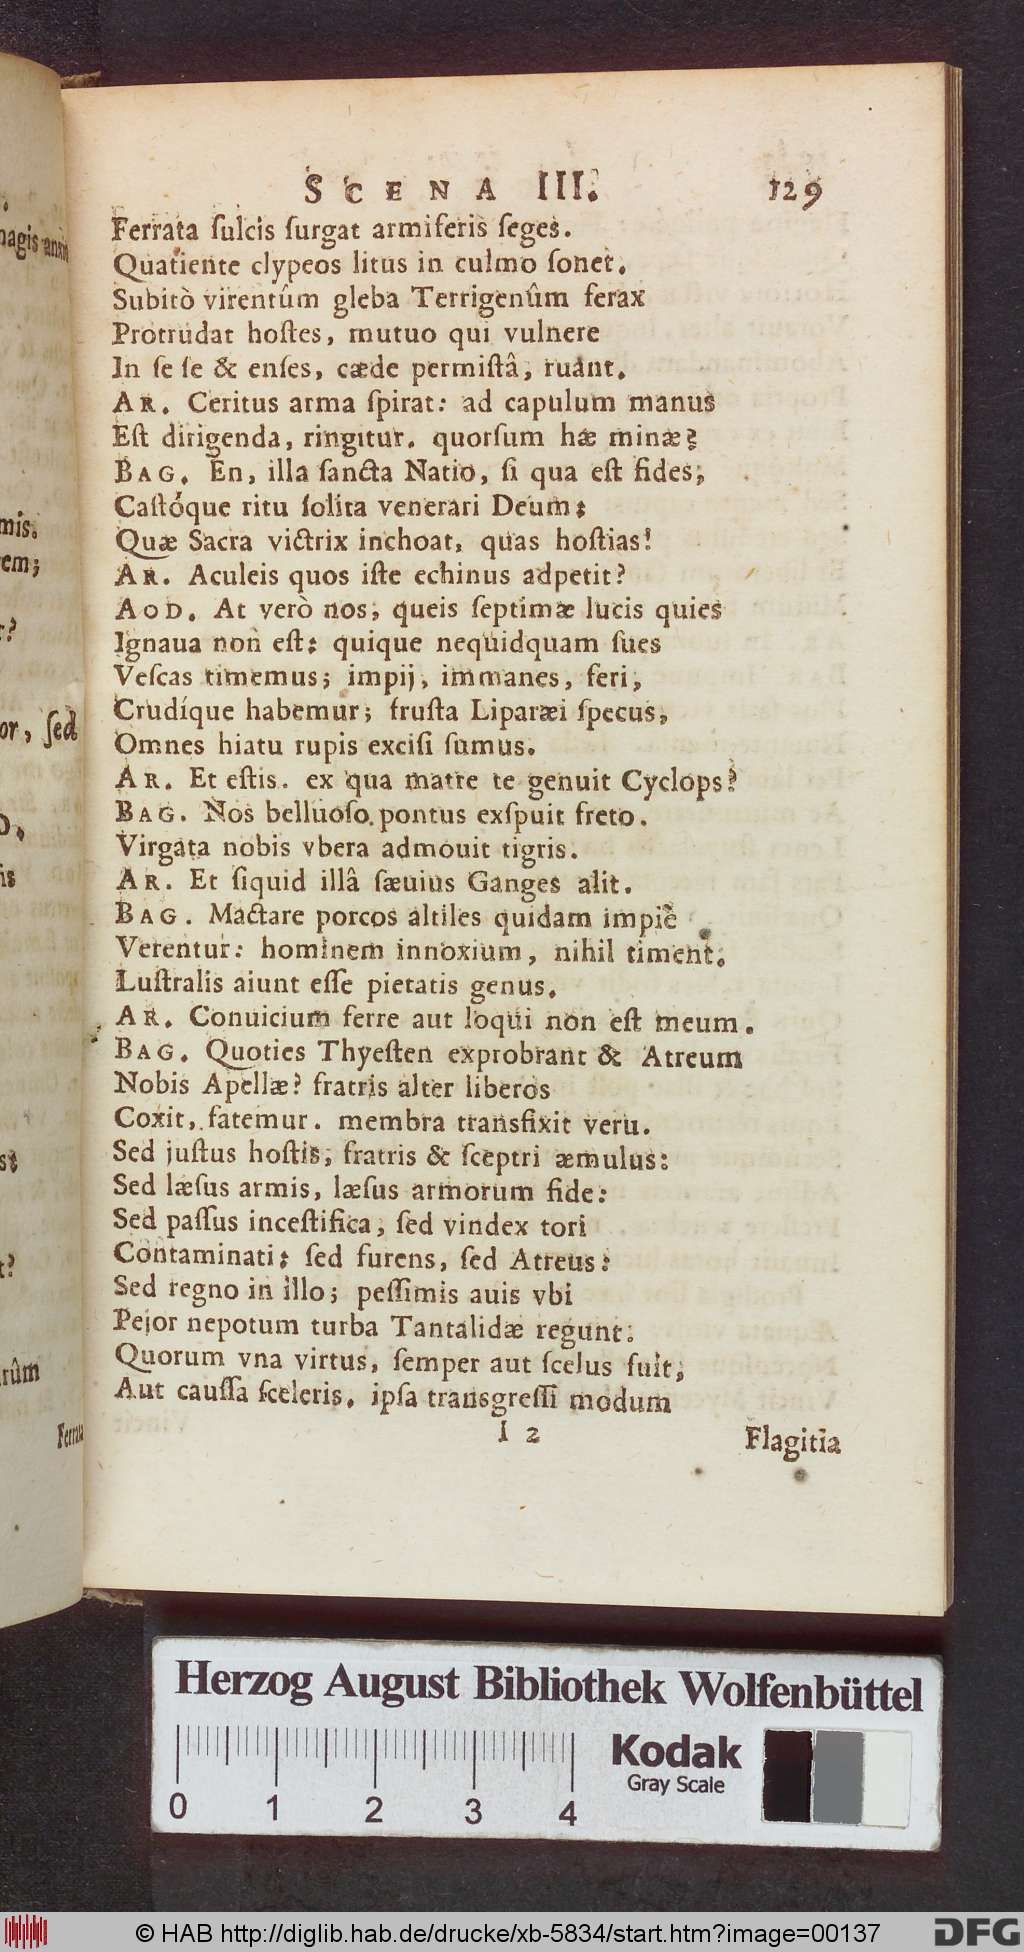 SCENA III. 129
Ferrata ſulcis ſurgat armiferis ſeges.
Quatiente clypeos litus in culmo ſonet.
Subitò virentûm gleba Terrigenûm ferax
Protrudat hoſtes, mutuo qui vulnere
In ſe ſe & enſes, cæde permiſtâ, ruant.
AR. Ceritus arma ſpirat: ad capulum manus
Eſt dirigenda, ringitur. quorſum hæ minæ?
BAG. En, illa ſancta Natio, ſi qua eſt fides;
Caſtóque ritu ſolita venerari Deum:
Quæ Sacra victrix inchoat, quas hoſtias!
AR. Aculeis quos iſte echinus adpetit?
AOD. At verò nos, queis ſeptimæ lucis quies
Ignaua non eſt: quique nequidquam ſues
Veſcas timemus; impij, immanes, feri,
Crudíque habemur; fruſta Liparæi ſpecus,
Omnes hiatu rupis exciſi ſumus.
AR. Et eſtis. ex qua matre te genuit Cyclops?
BAG. Nos belluoſo pontus exſpuit freto.
Virgata nobis vbera admouit tigris.
AR. Et ſiquid illâ ſæuius Ganges alit.
BAG. Mactare porcos altiles quidam impiè
Verentur: hominem innoxium, nihil timent.
Luſtralis aiunt eſſe pietatis genus.
AR. Conuicium ferre aut loqui non eſt meum.
BAG. Quoties Thyeſten exprobrant & Atreum
Nobis Apellæ? fratris alter liberos
Coxit, fatemur. membra transfixit veru.
Sed juſtus hoſtis, fratris & ſceptri æmulus:
Sed læſus armis, læſus armorum fide:
Sed paſſus inceſtifica, ſed vindex tori
Contaminati: ſed furens, ſed Atreus:
Sed regno in illo; peſſimis auis vbi
Pejor nepotum turba Tantalidæ regunt.
Quorum vna virtus, ſemper aut ſcelus fuit,
Aut cauſſa ſceleris. ipſa transgreſſi modum
I 2 Flagitia
mis.
em;
or, ſed
rûm
Ferrata
Herzog August Bibliothek Wolfenbüttel
Kodak
Gray Scale
0 1 2 3 4
© HAB http://diglib.hab.de/drucke/xb-5834/start.htm?image=00137
DFG